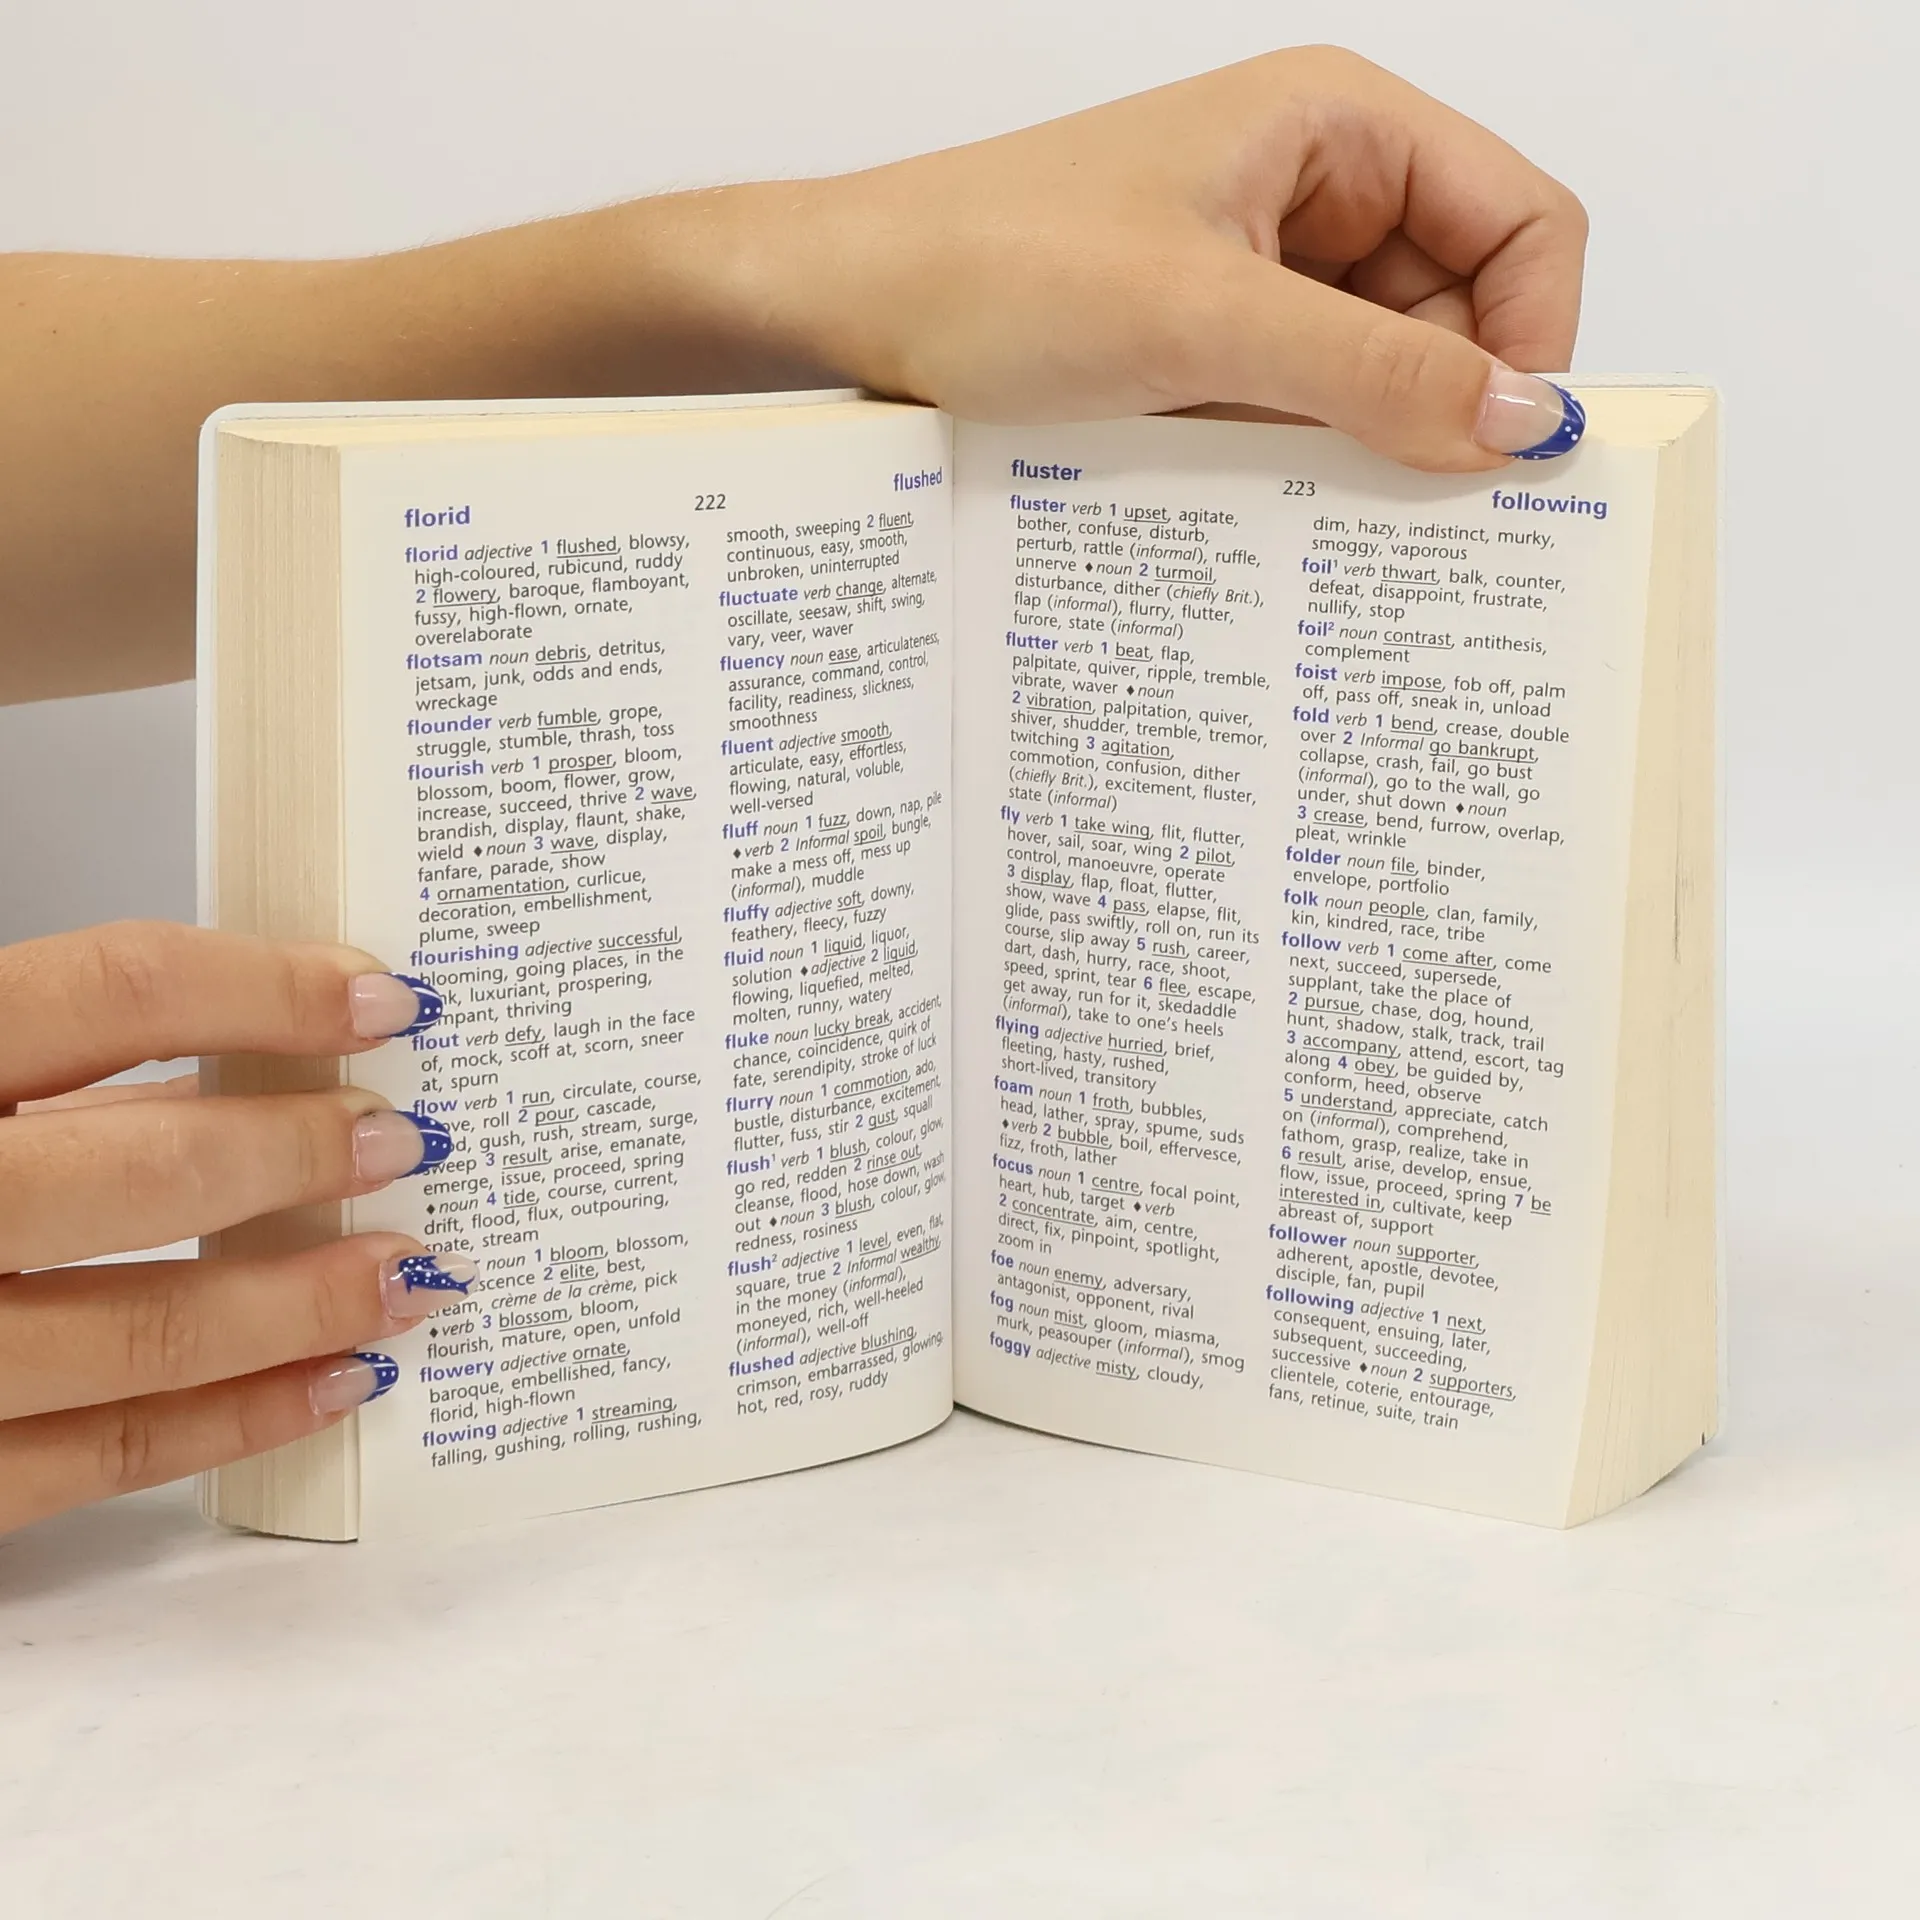 florid
222
flushed
florid adjective 1 flushed, blowsy,
high-coloured, rubicund, ruddy
2 flowery, baroque, flamboyant,
fussy, high-flown, ornate,
overelaborate
flotsam noun debris, detritus,
jetsam, junk, odds and ends,
wreckage
flounder verb fumble, grope,
struggle, stumble, thrash, toss
flourish verb 1 prosper, bloom,
blossom, boom, flower, grow,
increase, succeed, thrive 2 wave,
brandish, display, flaunt, shake,
wield ♦noun 3 wave, display,
fanfare, parade, show
4 ornamentation, curlicue,
decoration, embellishment,
plume, sweep
flourishing adjective successful,
blooming, going places, in the
luxuriant, prospering,
thriving
flout verb defy, laugh in the face
of, mock, scoff at, scorn, sneer
at, spurn
flow verb 1 run, circulate, course,
roll 2 pour, cascade,
gush, rush, stream, surge,
sweep 3 result, arise, emanate,
emerge, issue, proceed, spring
♦noun 4 tide, course, current,
drift, flood, flux, outpouring,
spate, stream
noun 1 bloom, blossom,
2 elite, best,
cream, crème de la crème, pick
♦verb 3 blossom, bloom,
flourish, mature, open, unfold
flowery adjective ornate,
baroque, embellished, fancy,
florid, high-flown
flowing adjective 1 streaming,
falling, gushing, rolling, rushing,
smooth, sweeping 2 fluent,
continuous, easy, smooth,
unbroken, uninterrupted
fluctuate verb change, alternate,
oscillate, seesaw, shift, swing,
vary, veer, waver
fluency noun ease, articulateness,
assurance, command, control,
facility, readiness, slickness,
smoothness
fluent adjective smooth,
articulate, easy, effortless,
flowing, natural, voluble,
well-versed
fluff noun 1 fuzz, down, nap, pile
♦verb 2 Informal spoil, bungle,
make a mess off, mess up
(informal), muddle
fluffy adjective soft, downy,
feathery, fleecy, fuzzy
fluid noun 1 liquid, liquor,
solution ♦adjective 2 liquid,
flowing, liquefied, melted,
molten, runny, watery
fluke noun lucky break, accident,
chance, coincidence, quirk of
fate, serendipity, stroke of luck
flurry noun 1 commotion, ado,
bustle, disturbance, excitement,
flutter, fuss, stir 2 gust, squall
flush¹ verb 1 blush, colour, glow,
go red, redden 2 rinse out,
cleanse, flood, hose down, wash
out ♦noun 3 blush, colour, glow,
redness, rosiness
flush² adjective 1 level, even, flat,
square, true 2 Informal wealthy,
in the money (informal),
moneyed, rich, well-heeled
(informal), well-off
flushed adjective blushing,
crimson, embarrassed, glowing,
hot, red, rosy, ruddy
fluster
223
following
fluster verb 1 upset, agitate,
bother, confuse, disturb,
perturb, rattle (informal), ruffle,
unnerve ♦noun 2 turmoil,
disturbance, dither (chiefly Brit.),
flap (informal), flurry, flutter,
furore, state (informal)
flutter verb 1 beat, flap,
palpitate, quiver, ripple, tremble,
vibrate, waver ♦noun
2 vibration, palpitation, quiver,
shiver, shudder, tremble, tremor,
twitching 3 agitation,
commotion, confusion, dither
(chiefly Brit.), excitement, fluster,
state (informal)
fly verb 1 take wing, flit, flutter,
hover, sail, soar, wing 2 pilot,
control, manoeuvre, operate
3 display, flap, float, flutter,
show, wave 4 pass, elapse, flit,
glide, pass swiftly, roll on, run its
course, slip away 5 rush, career,
dart, dash, hurry, race, shoot,
speed, sprint, tear 6 flee, escape,
get away, run for it, skedaddle
(informal), take to one's heels
flying adjective hurried, brief,
fleeting, hasty, rushed,
short-lived, transitory
foam noun 1 froth, bubbles,
head, lather, spray, spume, suds
♦verb 2 bubble, boil, effervesce,
fizz, froth, lather
focus noun 1 centre, focal point,
heart, hub, target ♦verb
2 concentrate, aim, centre,
direct, fix, pinpoint, spotlight,
zoom in
foe noun enemy, adversary,
antagonist, opponent, rival
fog noun mist, gloom, miasma,
murk, peasouper (informal), smog
foggy adjective misty, cloudy,
dim, hazy, indistinct, murky,
smoggy, vaporous
foil¹ verb thwart, balk, counter,
defeat, disappoint, frustrate,
nullify, stop
foil² noun contrast, antithesis,
complement
foist verb impose, fob off, palm
off, pass off, sneak in, unload
fold verb 1 bend, crease, double
over 2 Informal go bankrupt,
collapse, crash, fail, go bust
(informal), go to the wall, go
under, shut down ♦noun
3 crease, bend, furrow, overlap,
pleat, wrinkle
folder noun file, binder,
envelope, portfolio
folk noun people, clan, family,
kin, kindred, race, tribe
follow verb 1 come after, come
next, succeed, supersede,
supplant, take the place of
2 pursue, chase, dog, hound,
hunt, shadow, stalk, track, trail
3 accompany, attend, escort, tag
along 4 obey, be guided by,
conform, heed, observe
5 understand, appreciate, catch
on (informal), comprehend,
fathom, grasp, realize, take in
6 result, arise, develop, ensue,
flow, issue, proceed, spring 7 be
interested in, cultivate, keep
abreast of, support
follower noun supporter,
adherent, apostle, devotee,
disciple, fan, pupil
following adjective 1 next,
consequent, ensuing, later,
subsequent, succeeding,
successive ♦noun 2 supporters,
clientele, coterie, entourage,
fans, retinue, suite, train